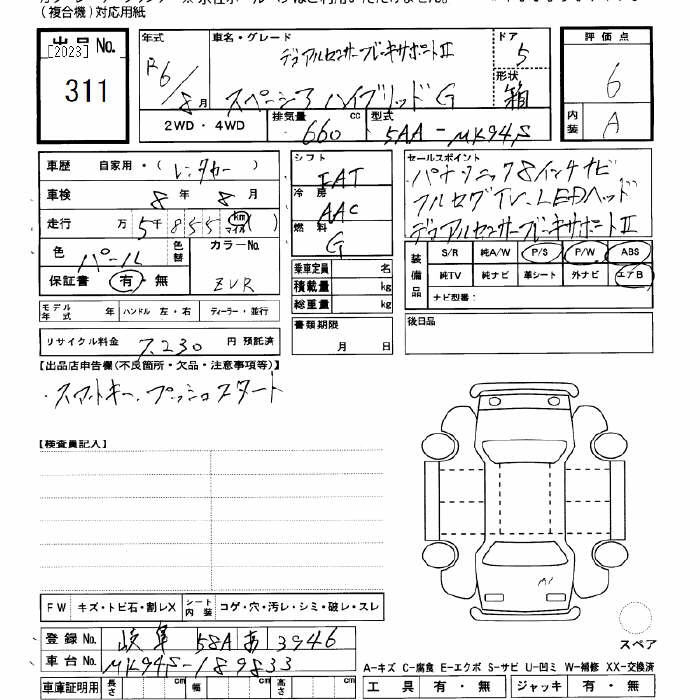 (複合機)対応用紙
出品No. [2023] 311
年式 R6/8月
車名・グレード デュアルセンサーブレーキサポートⅡ
スペーシア ハイブリッド G
ドア 5
形状 箱
評価点 6
内装 A
2WD・4WD 排気量 660 cc 型式 5AA-MK94S
車歴 自家用・(レンタカー)
車検 8年8月
走行 万 5千855 km マイル
色 パール 色替 カラーNo. ZVR
保証書 有・無
モデル年式 年 ハンドル 左・右 ディーラー・並行
リサイクル料金 7,230 円 預託済
シフト IAT
冷房 AAC
燃料 G
乗車定員 名
積載量 kg
総重量 kg
書類期限 月 日
セールスポイント
パナソニック8インチナビ
フルセグTV、LEDヘッド
デュアルセンサーブレーキサポートⅡ
装備品 S/R 純A/W P/S P/W ABS
純TV 純ナビ 革シート 外ナビ エアB
ナビ型番:
後日品
【出品店申告欄(不良箇所・欠品・注意事項等)】
・スマートキー、プッシュスタート
【検査員記入】
FW キズ・トビ石・割レX シート内装 コゲ・穴・汚レ・シミ・破レ・スレ
登録No. 岐阜 58A あ 3946
車台No. MK94S-189833
車庫証明用 長さ cm 幅 cm 高さ cm
スペア
A-キズ C-腐食 E-エクボ S-サビ U-凹ミ W-補修 XX-交換済
工具 有・無 ジャッキ 有・無